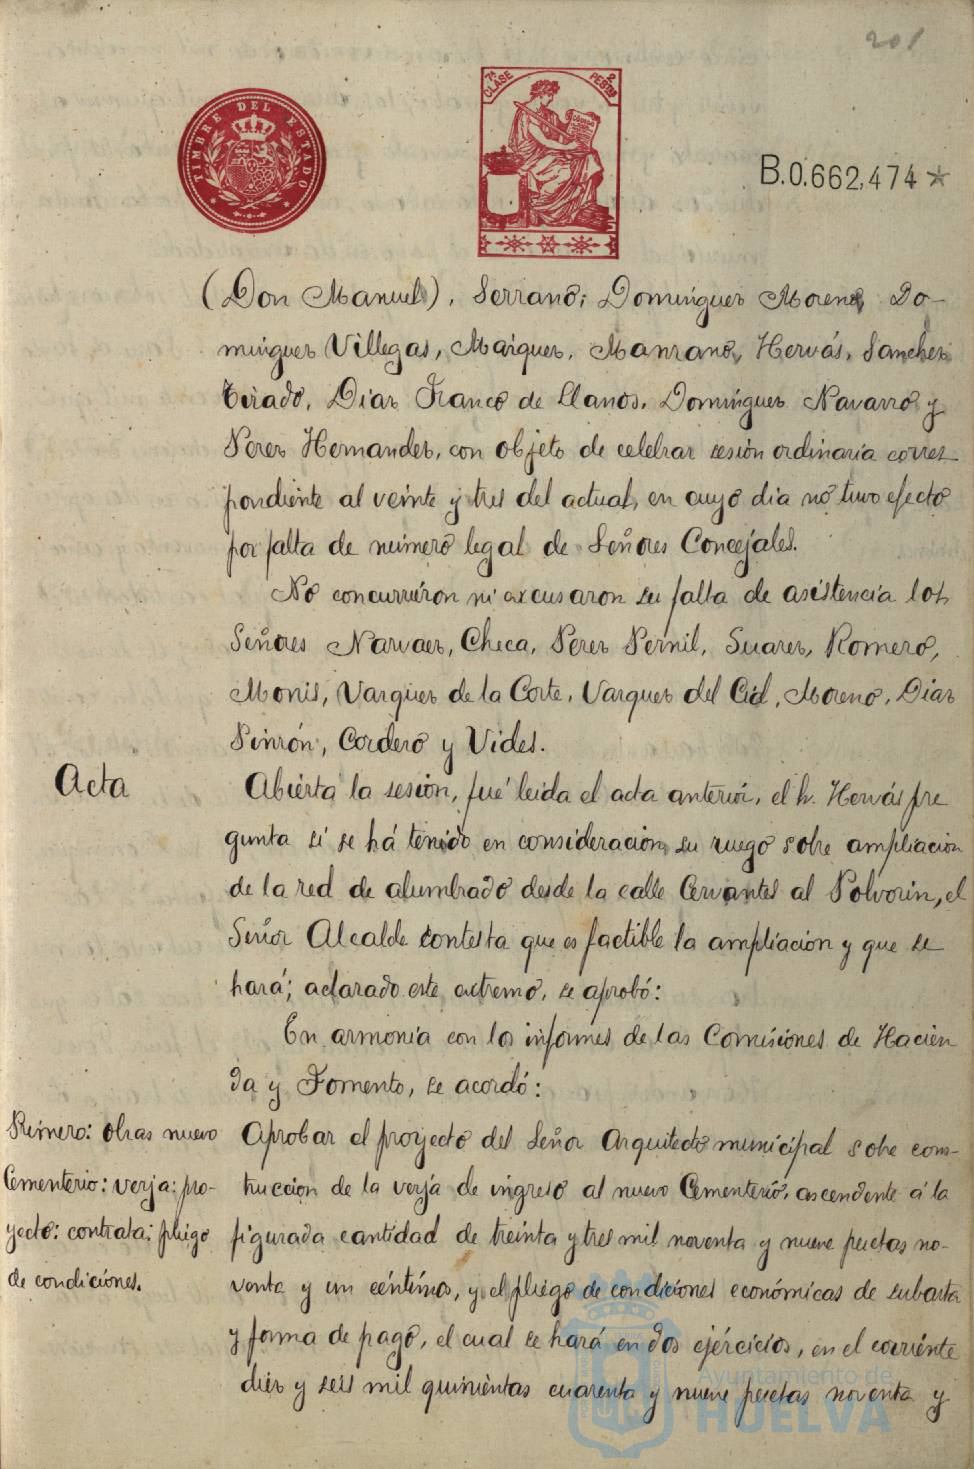 201
TIMBRE DEL ESTADO
7ª CLASE
2 PESETAS
B.0.662,474*
(Don Manuel), Serrano; Domínguez Moreno, Do-
mínguez Villegas, Maíquez, Manzano, Hervás, Sanchez
Tirado, Diaz Franco de Llanos, Domínguez Navarro y
Perez Hernandez, con objeto de celebrar sesión ordinaria corres-
pondiente al veinte y tres del actual, en cuyo dia no tuvo efecto
por falta de número legal de Señores Concejales.
No concurrieron ni excusaron su falta de asistencia los
Señores Narvaez, Checa, Perez Pernil, Suarez, Romero,
Monis, Vazquez de la Corte, Vazquez del Cid, Moreno, Diaz
Pinzón, Cordero y Vides.
Acta
Abierta la sesión, fué leida el acta anterior, el Sr. Hervás pre
gunta si se há tenido en consideracion su ruego sobre ampliacion
de la red de alumbrado desde la calle Cervantes al Polvorin, el
Señor Alcalde contesta que es factible la ampliacion y que se
hará; aclarado este extremo, se aprobó:
En armonía con los informes de las Comisiones de Hacien
da y Fomento, se acordó:
Primero: obras nuevo
Cementerio: verja: pro-
yecto: contrata: pliego
de condiciones.
Aprobar el proyecto del Señor Arquitecto municipal sobre cons-
truccion de la verja de ingreso al nuevo Cementerio, ascendente á la
figurada cantidad de treinta y tres mil noventa y nueve pesetas no-
venta y un céntimos, y el pliego de condiciones económicas de subasta
y forma de pago, el cual se hará en dos ejercicios, en el corriente
diez y seis mil quinientas cuarenta y nueve pesetas noventa y
Ayuntamiento de
HUELVA